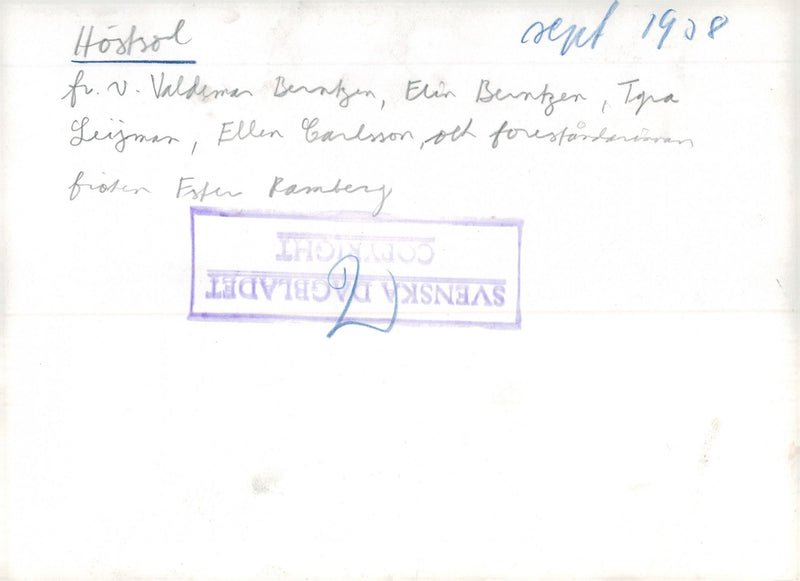 Höstsol
sept 1938
fr. v. Valdemar Berntzen, Elin Berntzen, Tyra
Leijman, Ellen Carlsson, och föreståndarinnan
fröken Ester Ramberg
SVENSKA DAGBLADET
COPYRIGHT
2